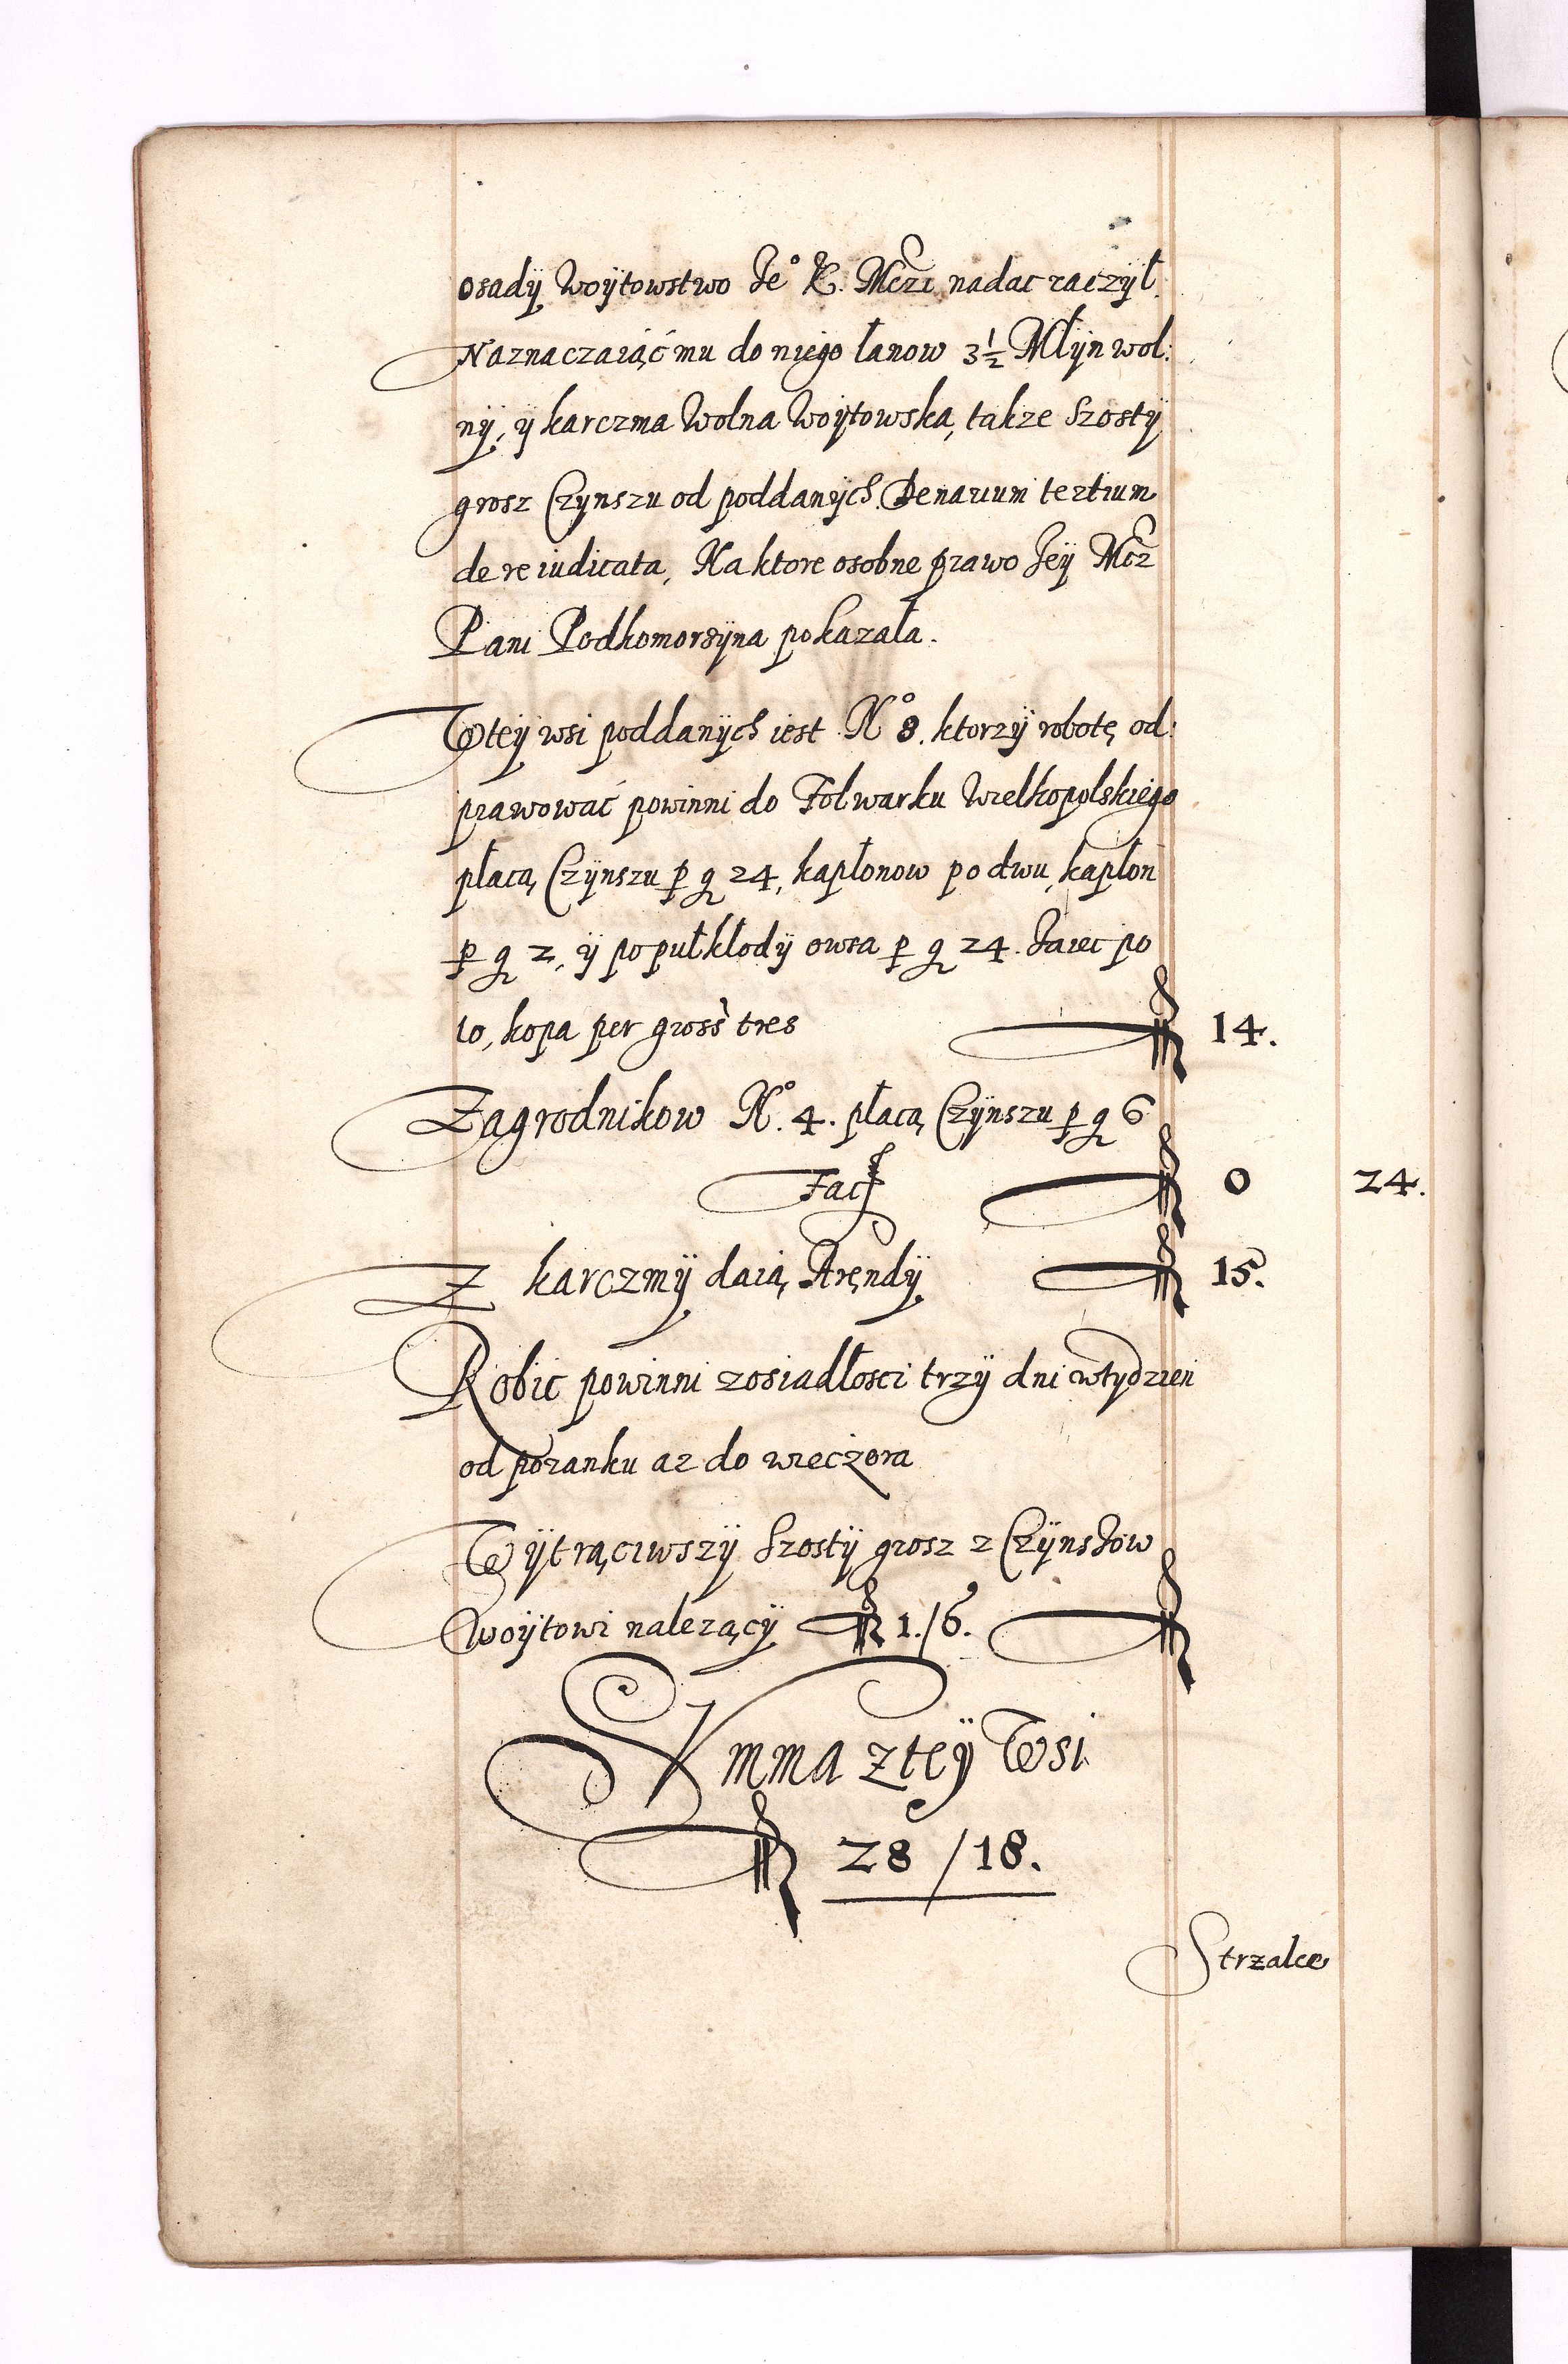 osadÿ Woÿtowstwo Je° K. Mczi nadac raczÿł.
Naznaczaiąć mu do niego łanow 3½ Młÿn wol:
nÿ, ÿ karczma Wolna Woÿtowska, takze Szostÿ
grosz Czÿnszu od poddanÿch. Denarium tertium
de re iudicata, Na ktore osobne prawo Jeÿ Mcz
Pani Podkomorzÿna pokazała.
W teÿ wsi poddanÿch iest N° 8. ktorzÿ robotę od:
prawować powinni do Folwarku Wielkopolskiego
płacą Czÿnszu p g 24, kapłonow po dwu, kapłon
p g 2, ÿ po pułkłodÿ owsa p g 24. Jaiec po
10, kopa per gross tres 14.
Zagrodnikow N° 4. płacą Czÿnszu p g 6
Facit 0 24.
Z karczmÿ daią Aręndÿ 15.
Robic powinni zosiadłosci trzÿ dni w tydzien
od poranku az do wieczora
Wÿtrąciwszÿ Szostÿ grosz z Czÿnszow
Woÿtowi nalezącÿ 1./6.
SVmma z teÿ Wsi
28 /18.
Strzalce